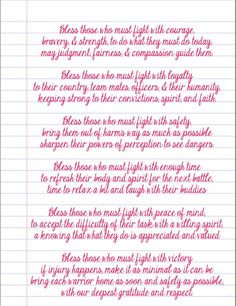 Bless those who must fight with courage,
bravery, & strength, to do what they must do today,
may judgment, fairness, & compassion guide them.
Bless those who must fight with loyalty
to their country, team mates, officers, & their humanity,
keeping strong to their convictions, spirit, and faith.
Bless those who must fight with safety,
bring them out of harms way as much as possible
sharpen their powers of perception to see dangers.
Bless those who must fight with enough time
to refresh their body and spirit for the next battle,
time to relax a bit and laugh with their buddies
Bless those who must fight with peace of mind,
to accept the difficulty of their task with a willing spirit,
a knowing that what they do is appreciated and valued
Bless those who must fight with victory
if injury happens, make it as minimal as it can be,
bring each warrior home as soon and safely as possible,
with our deepest gratitude and respect.